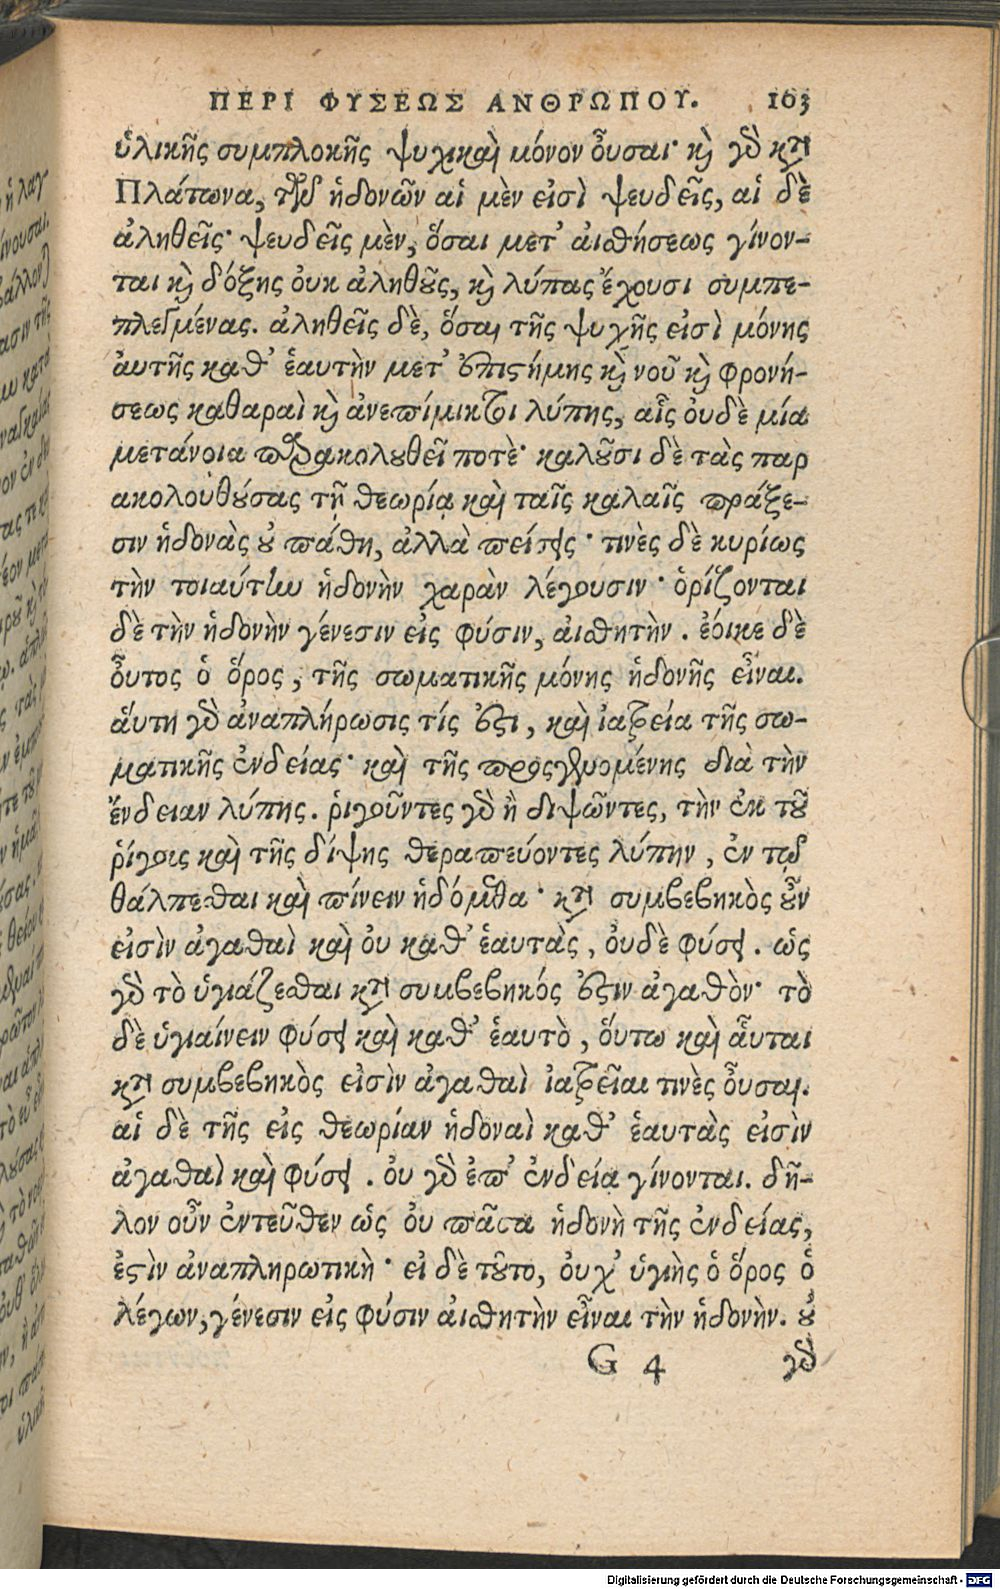 ΠΕΡΙ ΦΥΣΕΩΣ ΑΝΘΡΩΠΟΥ. 103
ὑλικῆς συμπλοκῆς ψυχικαὶ μόνον οὖσαι· καὶ γὰρ κατὰ
Πλάτωνα, τῶν ἡδονῶν αἱ μὲν εἰσὶ ψευδεῖς, αἱ δὲ
ἀληθεῖς· ψευδεῖς μὲν, ὅσαι μετ' αἰσθήσεως γίνον-
ται καὶ δόξης οὐκ ἀληθοῦς, καὶ λύπας ἔχουσι συμπε-
πλεγμένας. ἀληθεῖς δὲ, ὅσαι τῆς ψυχῆς εἰσὶ μόνης
ἀυτῆς καθ' ἑαυτὴν μετ' ἐπιστήμης καὶ νοῦ καὶ φρονή-
σεως καθαραὶ καὶ ἀνεπίμικτοι λύπης, αἷς ὀυδὲ μία
μετάνοια παρακολουθεῖ ποτὲ· καλοῦσι δὲ τὰς παρ
ακολουθούσας τῇ θεωρίᾳ καὶ ταῖς καλαῖς πράξε-
σιν ἡδονὰς οὐ πάθη, ἀλλὰ πείσεις· τινὲς δὲ κυρίως
τὴν τοιαύτην ἡδονὴν χαρὰν λέγουσιν· ὁρίζονται
δὲ τὴν ἡδονὴν γένεσιν εἰς φύσιν, ἀισθητὴν. ἔοικε δὲ
οὗτος ὁ ὅρος, τῆς σωματικῆς μόνης ἡδονῆς εἶναι.
ἅυτη γὰρ ἀναπλήρωσις τίς ἐστι, καὶ ἰατρεία τῆς σω-
ματικῆς ἐνδείας· καὶ τῆς προσγενομένης διὰ τὴν
ἔνδειαν λύπης. ῥιγοῦντες γὰρ ἢ διψῶντες, τὴν ἐκ τοῦ
ῥίγους καὶ τῆς δίψης θεραπεύοντες λύπην, ἐν τῷ
θάλπεσθαι καὶ πίνειν ἡδόμεθα· κατὰ συμβεβηκὸς οὖν
εἰσὶν ἀγαθαὶ καὶ ὀυ καθ' ἑαυτὰς, ὀυδὲ φύσει. ὡς
γὰρ τὸ ὑγιάζεσθαι κατὰ συμβεβηκός ἐστιν ἀγαθὸν· τὸ
δὲ ὑγιαίνειν φύσει καὶ καθ' ἑαυτὸ, ὅυτω καὶ ἇυται
κατὰ συμβεβηκὸς εἰσὶν ἀγαθαὶ ἰατρεῖαι τινὲς οὖσαι.
αἱ δὲ τῆς εἰς θεωρίαν ἡδοναὶ καθ' ἑαυτὰς εἰσὶν
ἀγαθαὶ καὶ φύσει. ὀυ γὰρ ἐπ' ἐνδεία γίνονται. δῆ-
λον οὖν ἐντεῦθεν ὡς ὀυ πᾶσα ἡδονὴ τῆς ἐνδείας,
ἐστὶν ἀναπληρωτικὴ· εἰ δὲ τοῦτο, ὀυχ' ὑγιὴς ὁ ὅρος ὁ
λέγων, γένεσιν εἰς φύσιν ἀισθητὴν εἶναι τὴν ἡδονὴν. οὐ
G 4 γὰρ
Digitalisierung gefördert durch die Deutsche Forschungsgemeinschaft - DFG